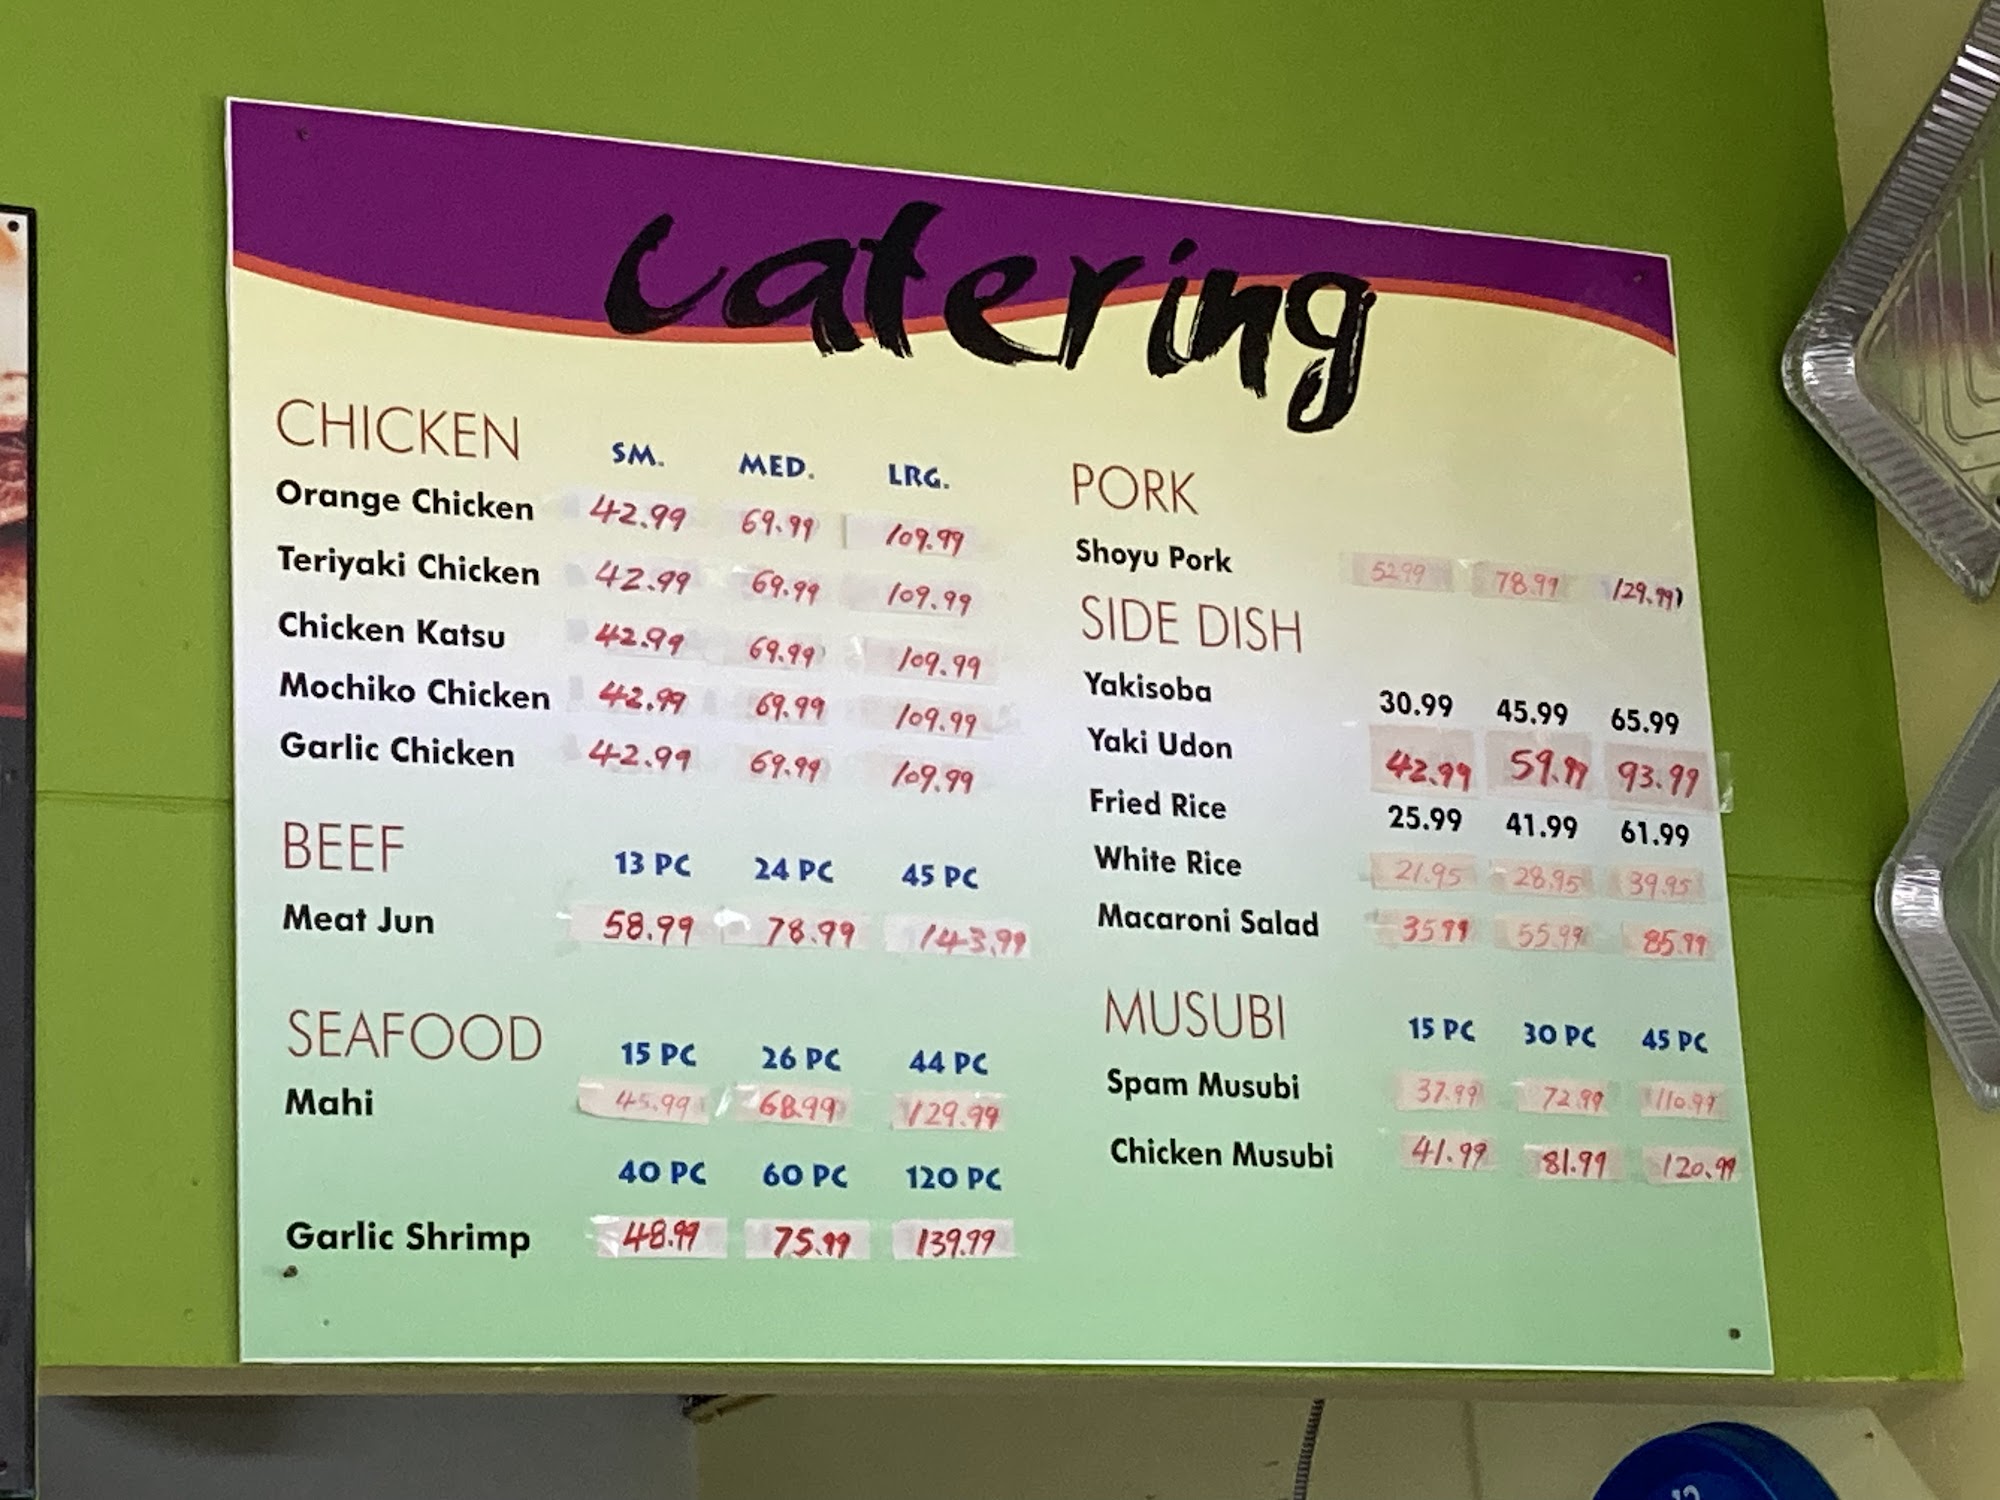 catering
CHICKEN SM. MED. LRG.
Orange Chicken 42.99 69.99 109.99
Teriyaki Chicken 42.99 69.99 109.99
Chicken Katsu 42.99 69.99 109.99
Mochiko Chicken 42.99 69.99 109.99
Garlic Chicken 42.99 69.99 109.99
BEEF 13 PC 24 PC 45 PC
Meat Jun 58.99 78.99 143.99
SEAFOOD 15 PC 26 PC 44 PC
Mahi 45.99 68.99 129.99
40 PC 60 PC 120 PC
Garlic Shrimp 48.99 75.99 139.99
PORK
Shoyu Pork 52.99 78.99 129.99
SIDE DISH
Yakisoba 30.99 45.99 65.99
Yaki Udon 42.99 59.99 93.99
Fried Rice 25.99 41.99 61.99
White Rice 21.95 28.95 39.95
Macaroni Salad 35.99 55.99 85.99
MUSUBI 15 PC 30 PC 45 PC
Spam Musubi 37.99 72.99 110.99
Chicken Musubi 41.99 81.99 120.99